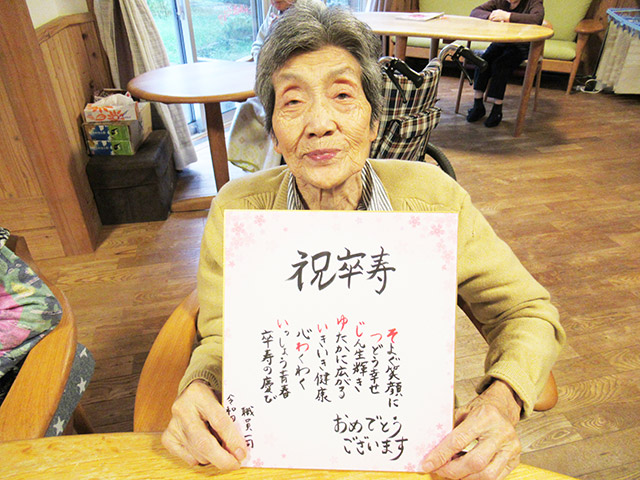 祝卒寿
そよぐ笑顔に
つどう幸せ
じん生輝き
ゆたかに広がる
いきいき健康
心わくわく
いっしょう青春
卒寿の慶び
おめでとう
ございます
職員一同
令和